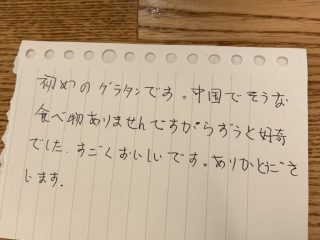 初めのグラタンです。中国でそうな
食べ物ありませんですからずうと好奇
でした、すごくおいしいです。ありがとうござ
います.